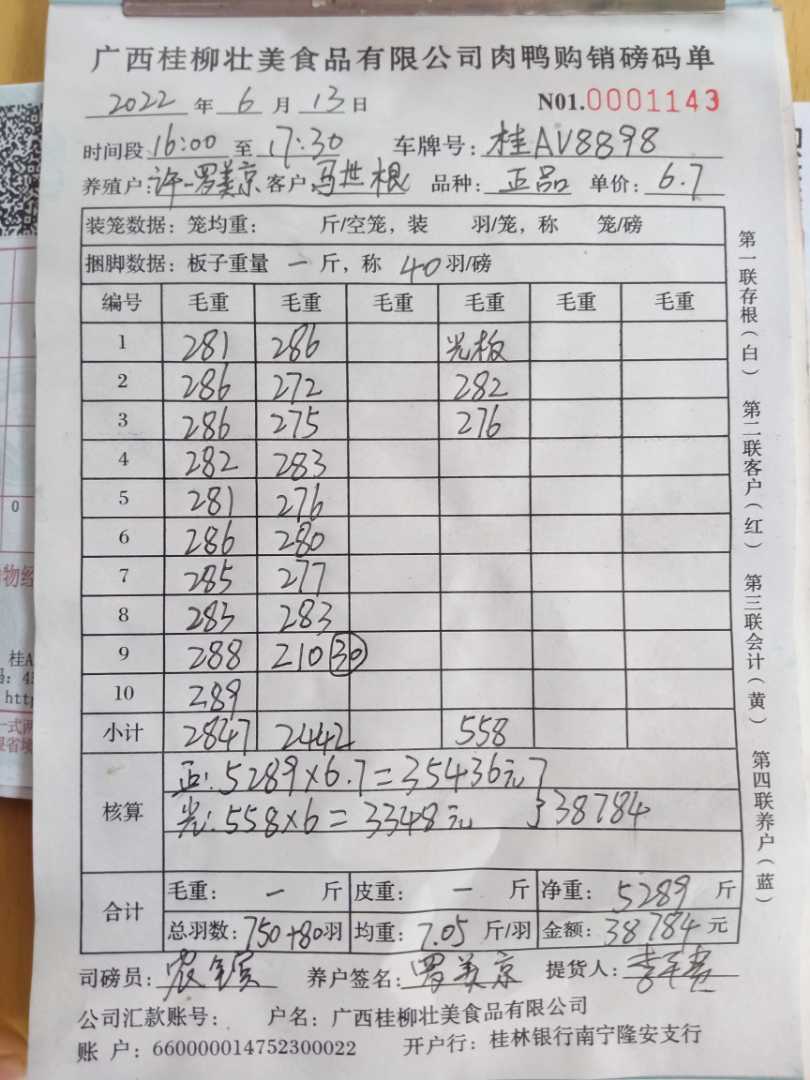 广西桂柳壮美食品有限公司肉鸭购销磅码单
2022 年 6 月 13 日 N01.0001143
时间段 16:00 至 17:30 车牌号: 桂AV8898
养殖户: 许-罗美京 客户: 马世根 品种: 正品 单价: 6.7
装笼数据: 笼均重: 斤/空笼, 装 羽/笼, 称 笼/磅
捆脚数据: 板子重量 一 斤, 称 40 羽/磅
编号 毛重 毛重 毛重 毛重 毛重 毛重
1 281 286 光板
2 286 272 282
3 286 275 276
4 282 283
5 281 276
6 286 280
7 285 277
8 283 283
9 288 210 30
10 289
小计 2847 2442 558
核算 正: 5289×6.7=35436元
光: 558×6=3348元 }38784
合计 毛重: 一 斤 皮重: 一 斤 净重: 5289 斤
总羽数: 750+80羽 均重: 7.05 斤/羽 金额: 38784 元
司磅员: 养户签名: 罗美京 提货人:
公司汇款账号: 户名: 广西桂柳壮美食品有限公司
账 户: 660000014752300022 开户行: 桂林银行南宁隆安支行
第一联存根(白) 第二联客户(红) 第三联会计(黄) 第四联养户(蓝)